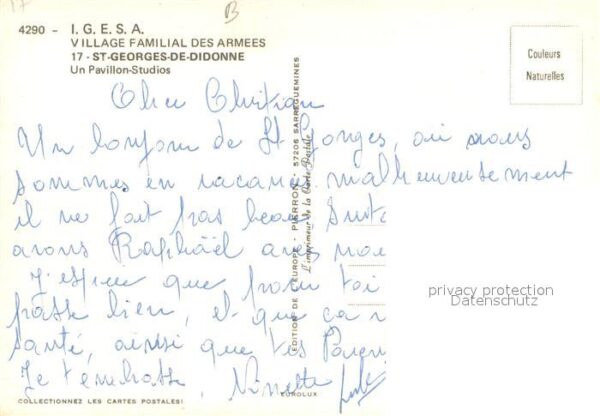 17
B
4290 - I. G. E. S. A.
VILLAGE FAMILIAL DES ARMEES
17 - ST-GEORGES-DE-DIDONNE
Un Pavillon-Studios
Couleurs
Naturelles
Cher Christian
Un bonjour de St Georges, où nous
sommes en vacances malheureusement
il ne fait pas beau
avons Raphaël avec nou
J'espère que pour toi
passe bien, et que ça
santé, ainsi que tes Paren
Je t'embrasse, Ninette
EDITION DE L'EUROPE - PIERRON - 57206 SARREGUEMINES
L'imprimeur de la Carte Postale
privacy protection
Datenschutz
COLLECTIONNEZ LES CARTES POSTALES!
EUROLUX